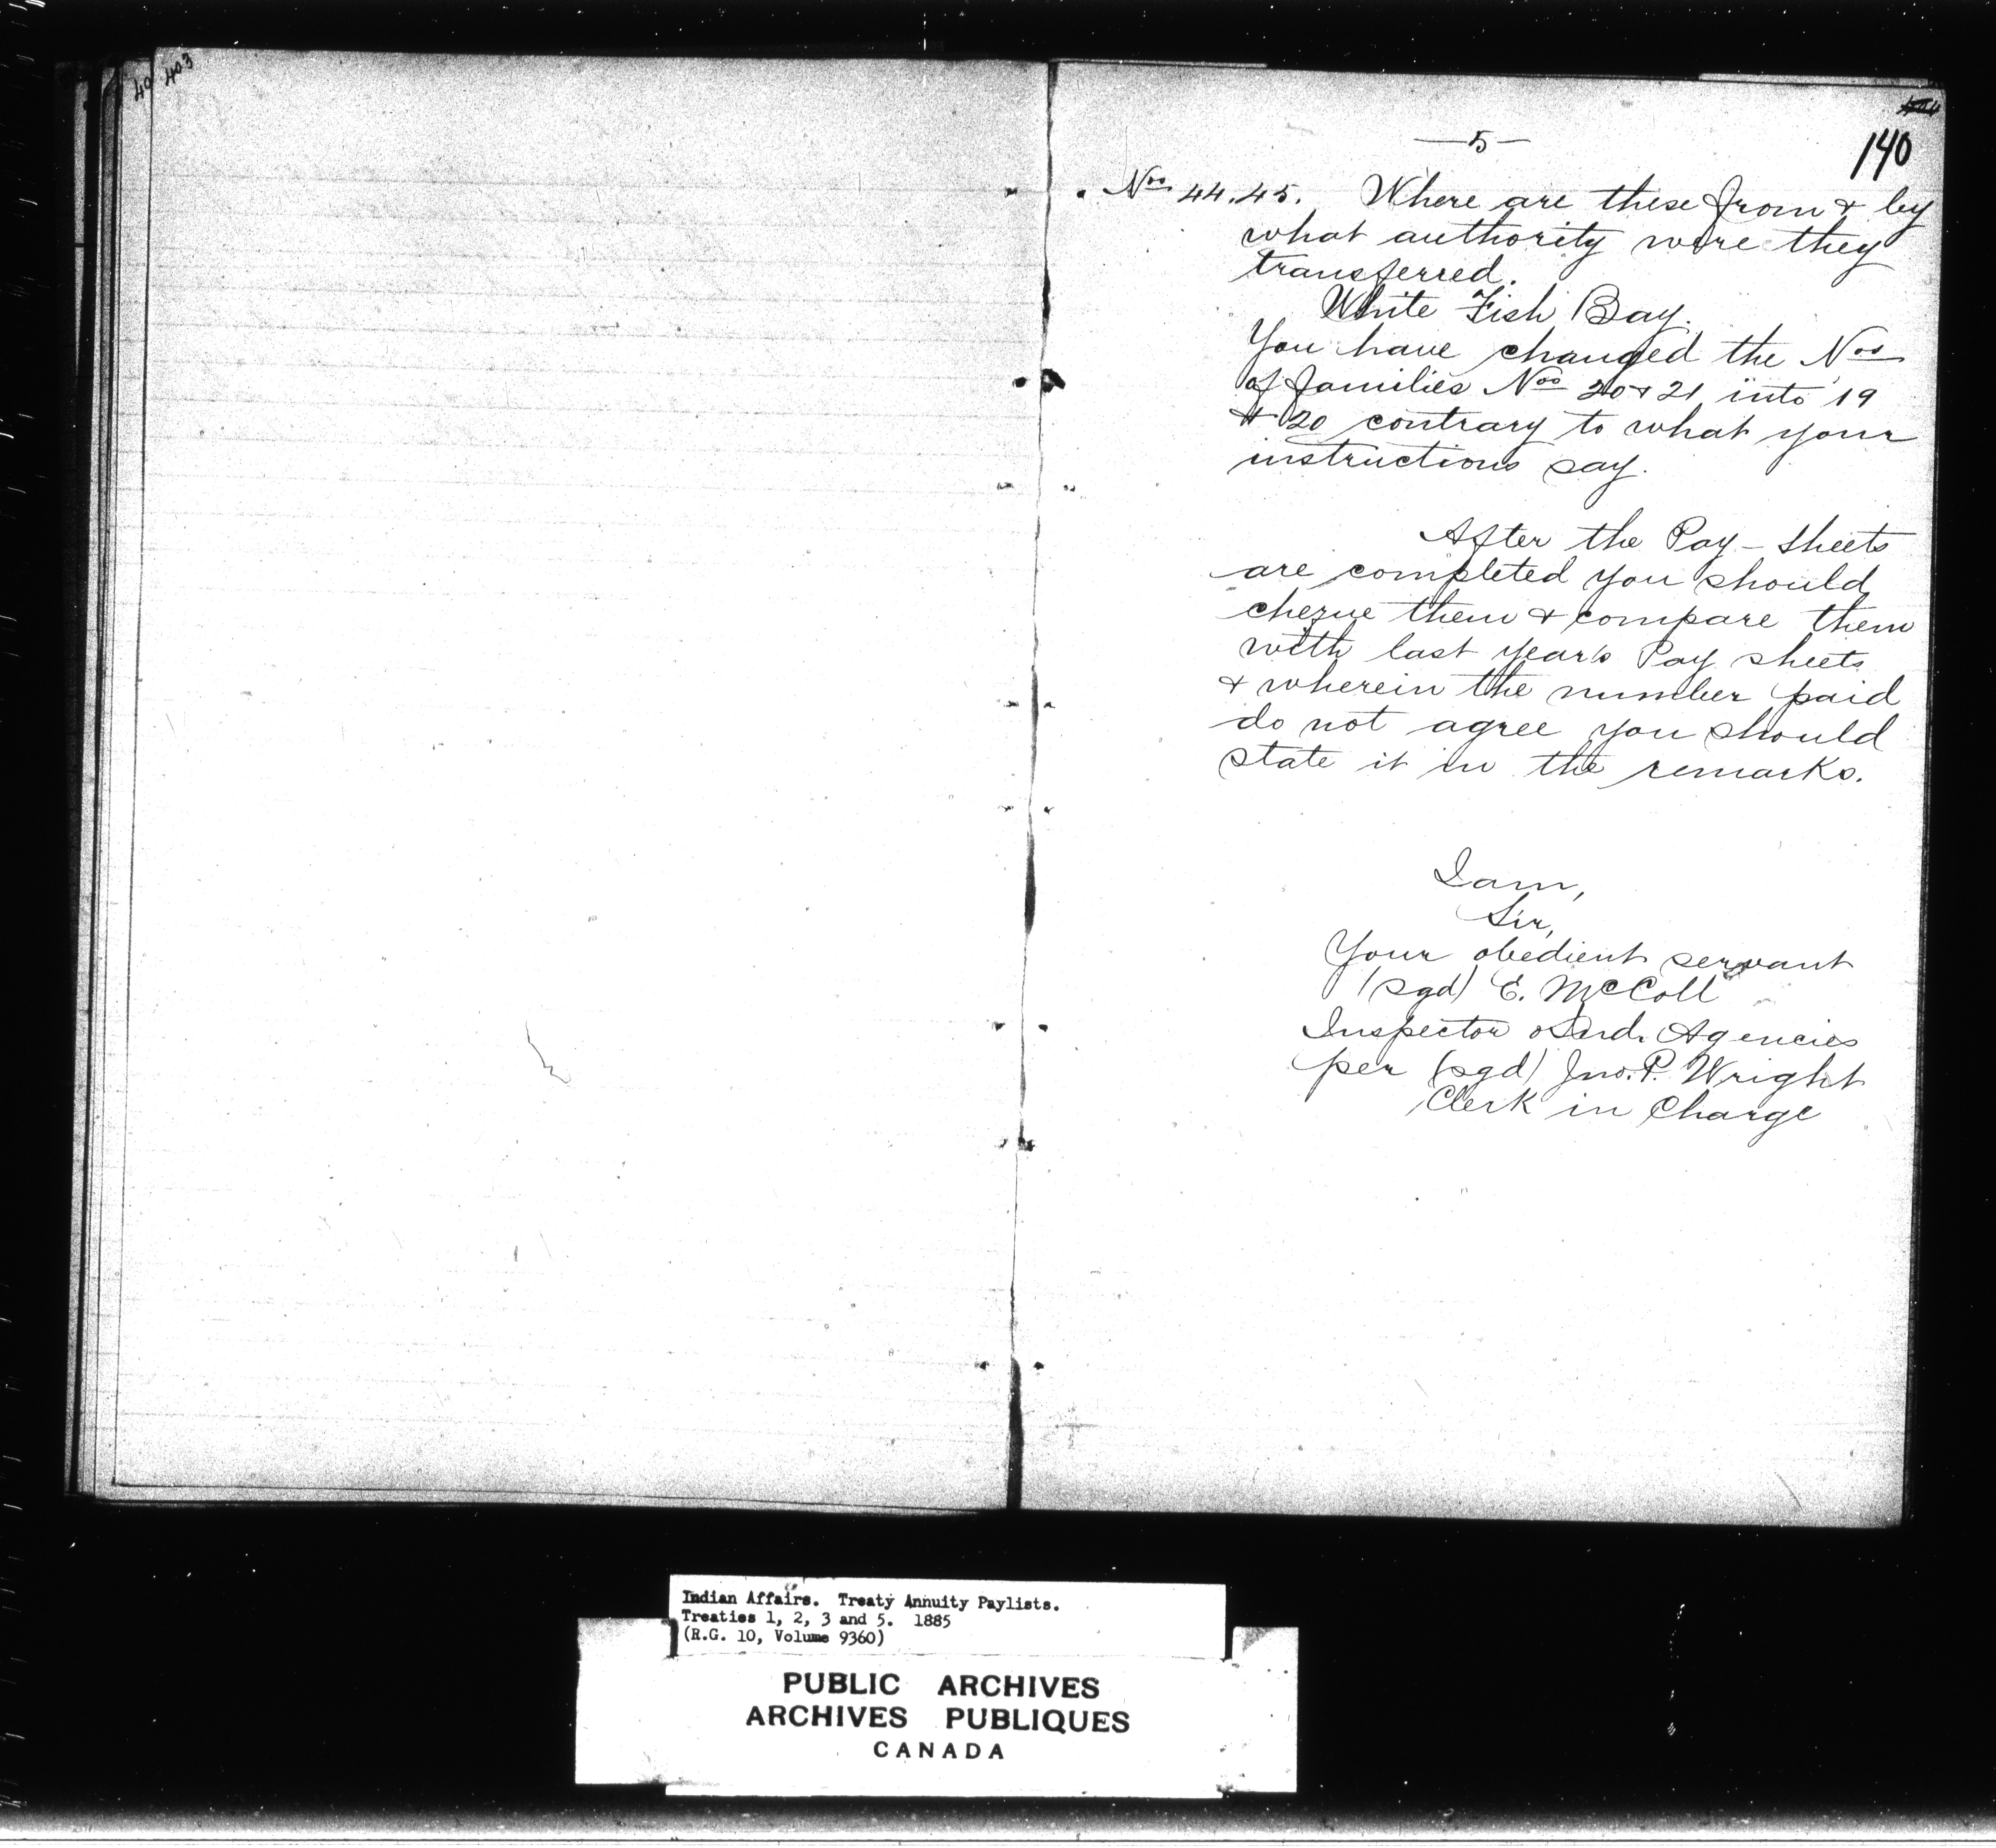 40 403
—5—
140
Nos 44.45. Where are these from & by
what authority were they
transferred.
White Fish Bay.
You have changed the Nos
of families Nos 20 & 21 into 19
& 20 contrary to what your
instructions say.
After the Pay-sheets
are completed you should
cheque them & compare them
with last year's Pay sheets
& wherein the number paid
do not agree you should
state it in the remarks.
I am,
Sir,
Your obedient servant
(sgd) E. McColl
Inspector of Ind. Agencies
per (sgd) Jno. P. Wright
Clerk in Charge
Indian Affairs. Treaty Annuity Paylists.
Treaties 1, 2, 3 and 5. 1885
(R.G. 10, Volume 9360)
PUBLIC ARCHIVES
ARCHIVES PUBLIQUES
CANADA